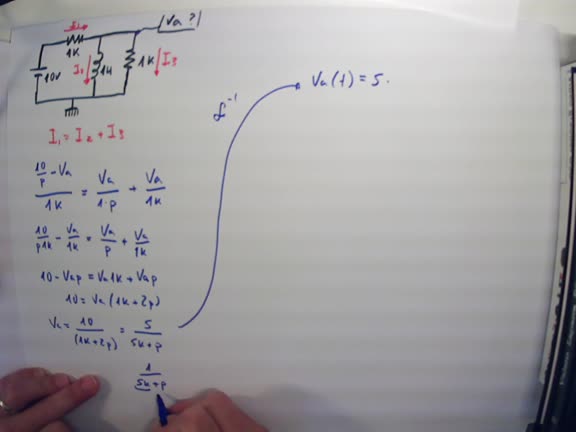 I₁ Va?)
1K
10V I₂ 1H 1K I₃
I₁ = I₂ + I₃
(10/p - Va)/1K = Va/(1·p) + Va/1K
10/(p1K) - Va/1K = Va/p + Va/1K
10 - Vap = Va1K + Vap
10 = Va (1K + 2p)
Va = 10/(1K+2p) = 5/(5K+p)
1/(5K+p)
ℒ⁻¹
Va(t) = 5·